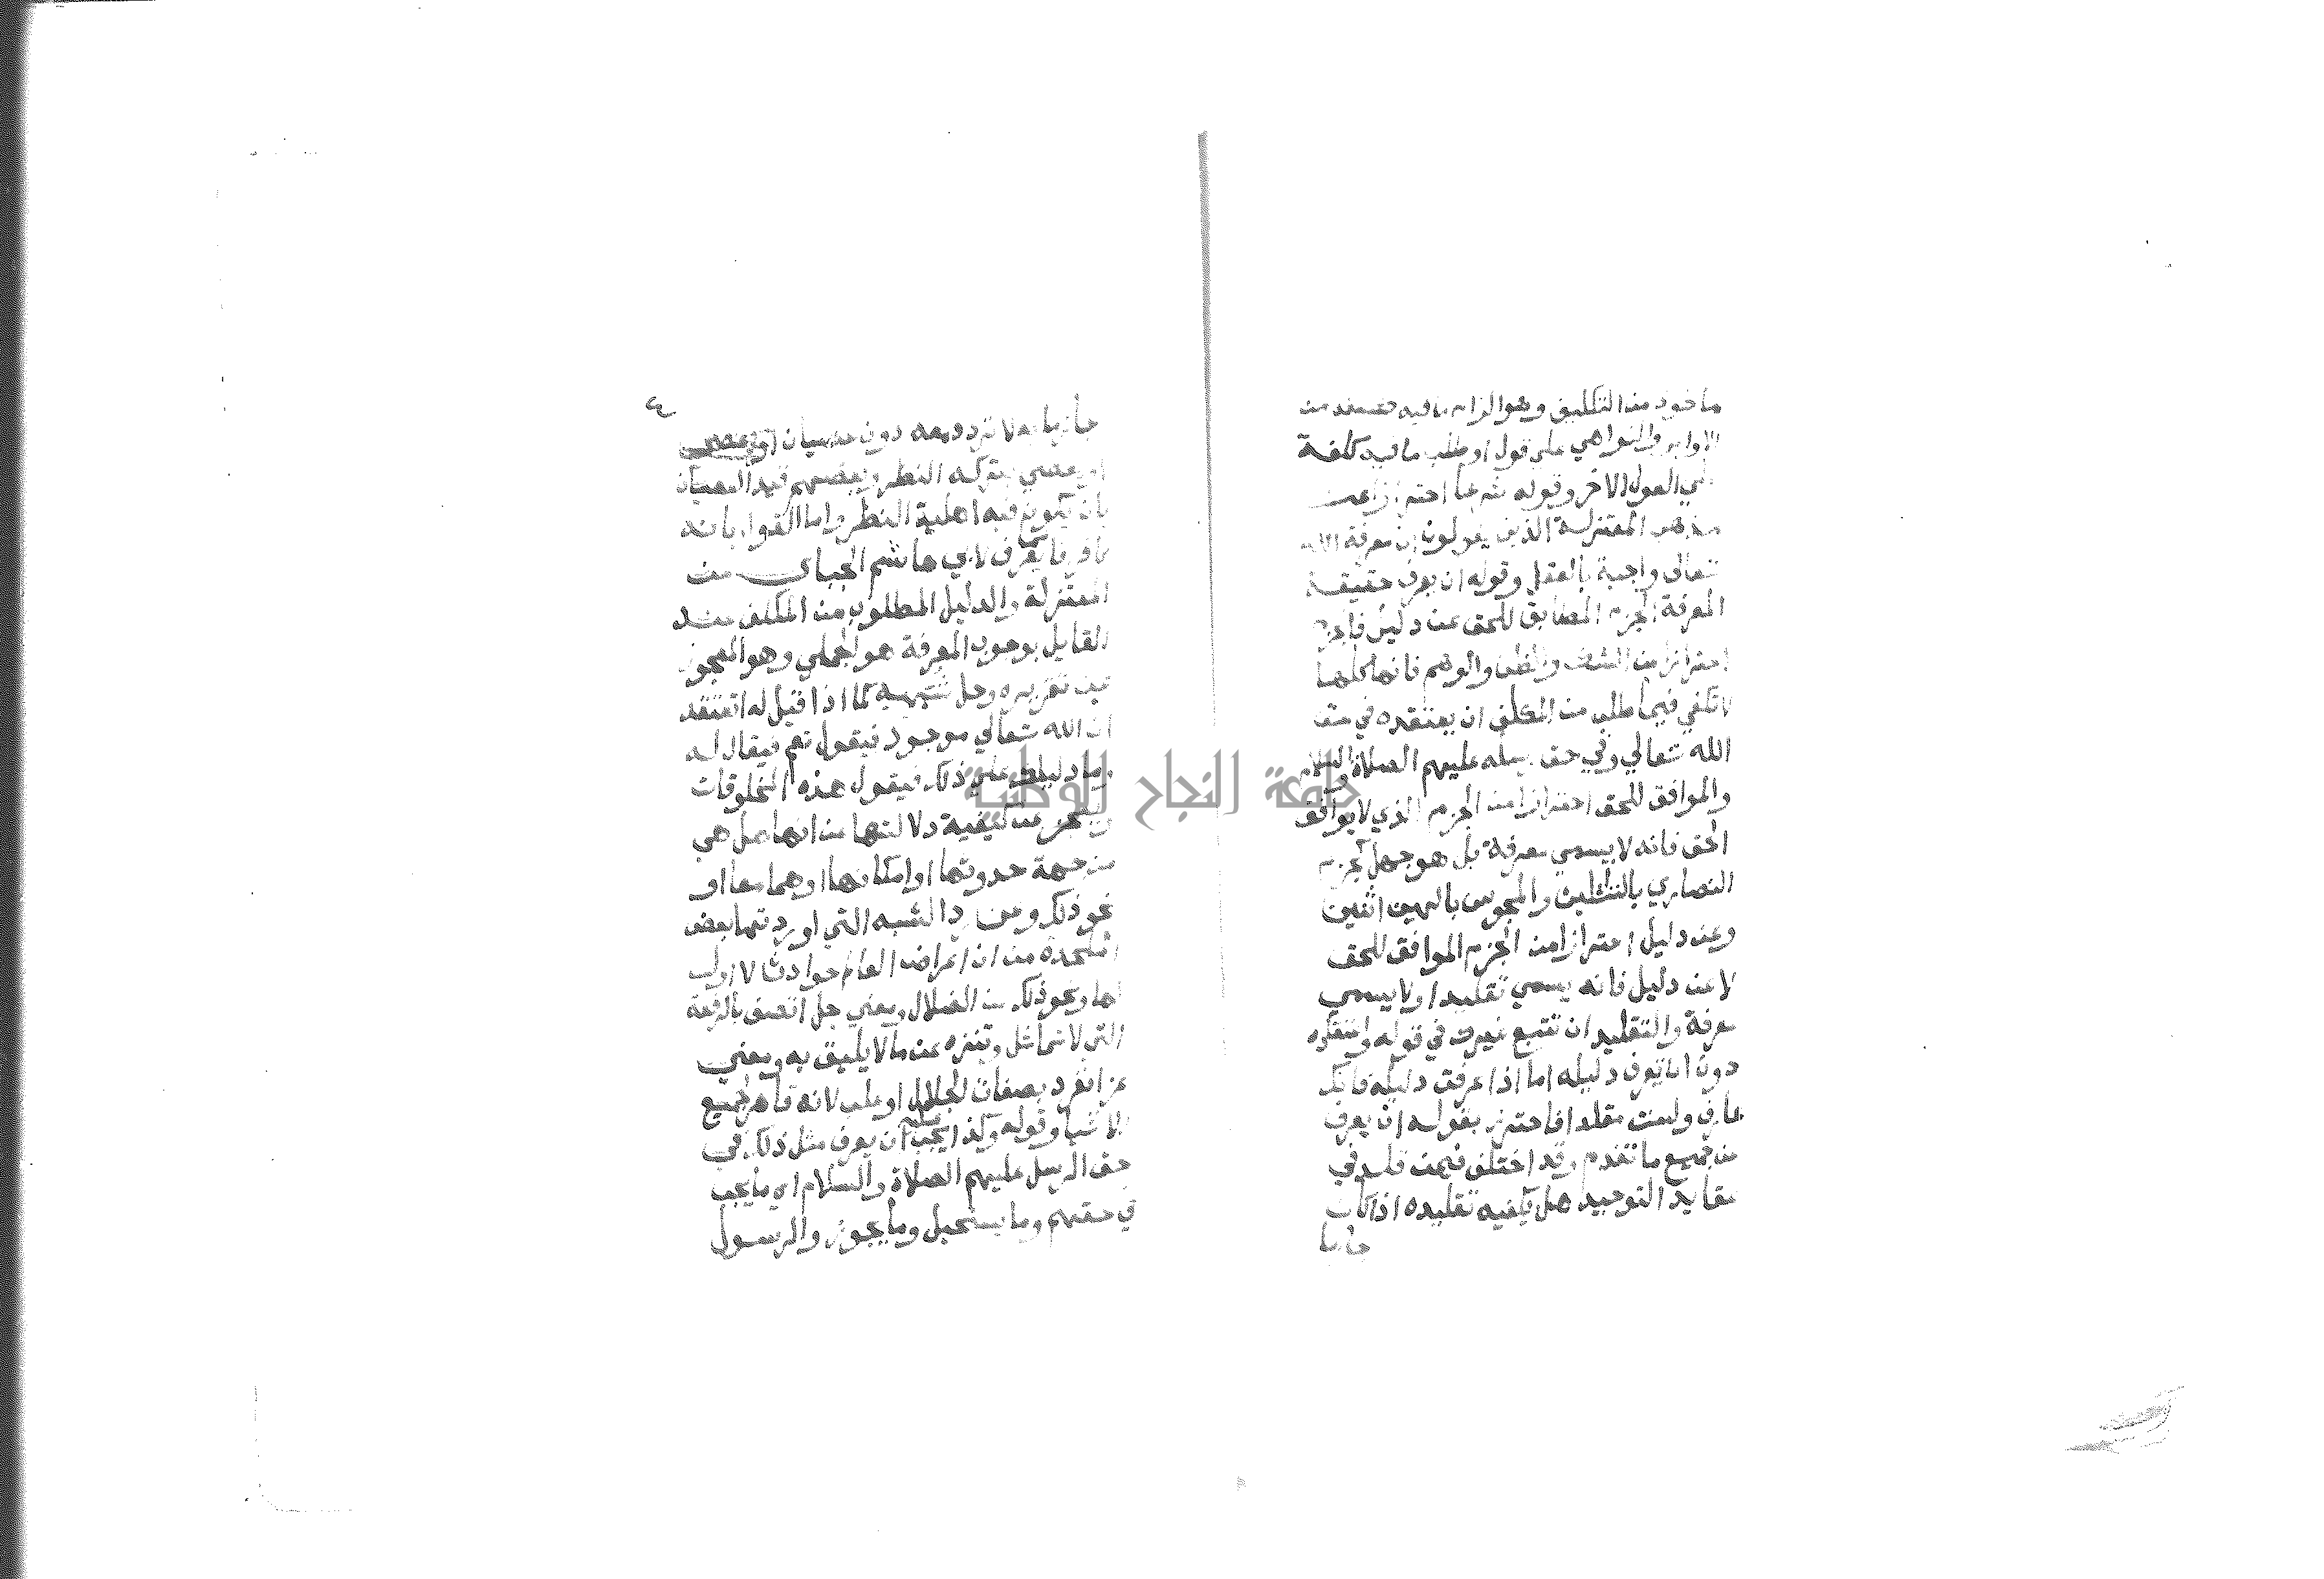 ماخوذ من التكليف وهو الزام ما فيه كلفة من
الاوامر والنواهي علي قول او طلب ما فيه كلفة
علي القول الاخر وقوله شرعا احترازا عن
مذهب المعتزلة الذين يقولون ان معرفة الله
تعالى واجبة بالعقل وقوله ان يعرف حقيقة
المعرفة الجزم المطابق للحق عن دليل فالجزم
احترازا من الشك والظن والوهم فانها كلها
لا تكفي فيما طلب من المكلف ان يعتقده في حق
الله تعالي وفي حق رسله عليهم الصلاة والسلام
والموافق للحق احترازا من الجزم الذي لا يوافق
الحق فانه لا يسمي معرفة بل هو جهل كجزم
النصاري بالتثليث والمجوس بالهين اثنين
وعن دليل احترازا من الجزم الموافق للحق
لا عن دليل فانه يسمي تقليدا ولا يسمي
معرفة والتقليد ان تتبع غيرك في قوله واعتقاده
دون ان تعرف دليله اما اذا عرفت دليله فانك
عارف ولست مقلدا فاحترز بقوله ان يعرف
من جميع ما تقدم وقد اختلف فيمن قلد في
عقايد التوحيد هل يكفيه تقليده اذا كان
جازما
جازما به لا تردد معه دون عصيان
او يعصي بتركه النظر وبعضهم قيد العصيان
بان يكون فيه اهلية النظر واما القول بانه
كافر فا يعرف لابي هاشم الجباى من
المعتزلة والدليل المطلوب من المكلف عند
القايل بوجوب المعرفة هو الجملي وهو المعجوز
عن تقريره وحل شبهه كما اذا قيل له اتعتقد
ان الله تعالي موجود فيقول نعم فيقال له
وما دليلك علي ذلك فيقول هذه المخلوقات
ويعجز عن كيفية دلالتها من انها هل هي
من جهة حدوثها او امكانها او هما معا او
نحو ذلك وعن رد الشبه التي اوردتها بعض
الملحدة من ان اعراض العالم حوادث لا اول
لها ونحو ذلك من الضلال ومعني جل اتصف بالرفعة
التي لا تماثل وتنزه عن ما لا يليق به ومعني
عز انفرد بصفات الجلال او غلب لانه قاهر لجميع
الاشيا وقوله وكذا يجب عليه ان يعرف مثل ذلك في
حق الرسل عليهم الصلاة والسلام اي ما يجب
في حقهم وما يستحيل وما يجوز والرسول
جامعة النجاح الوطنية